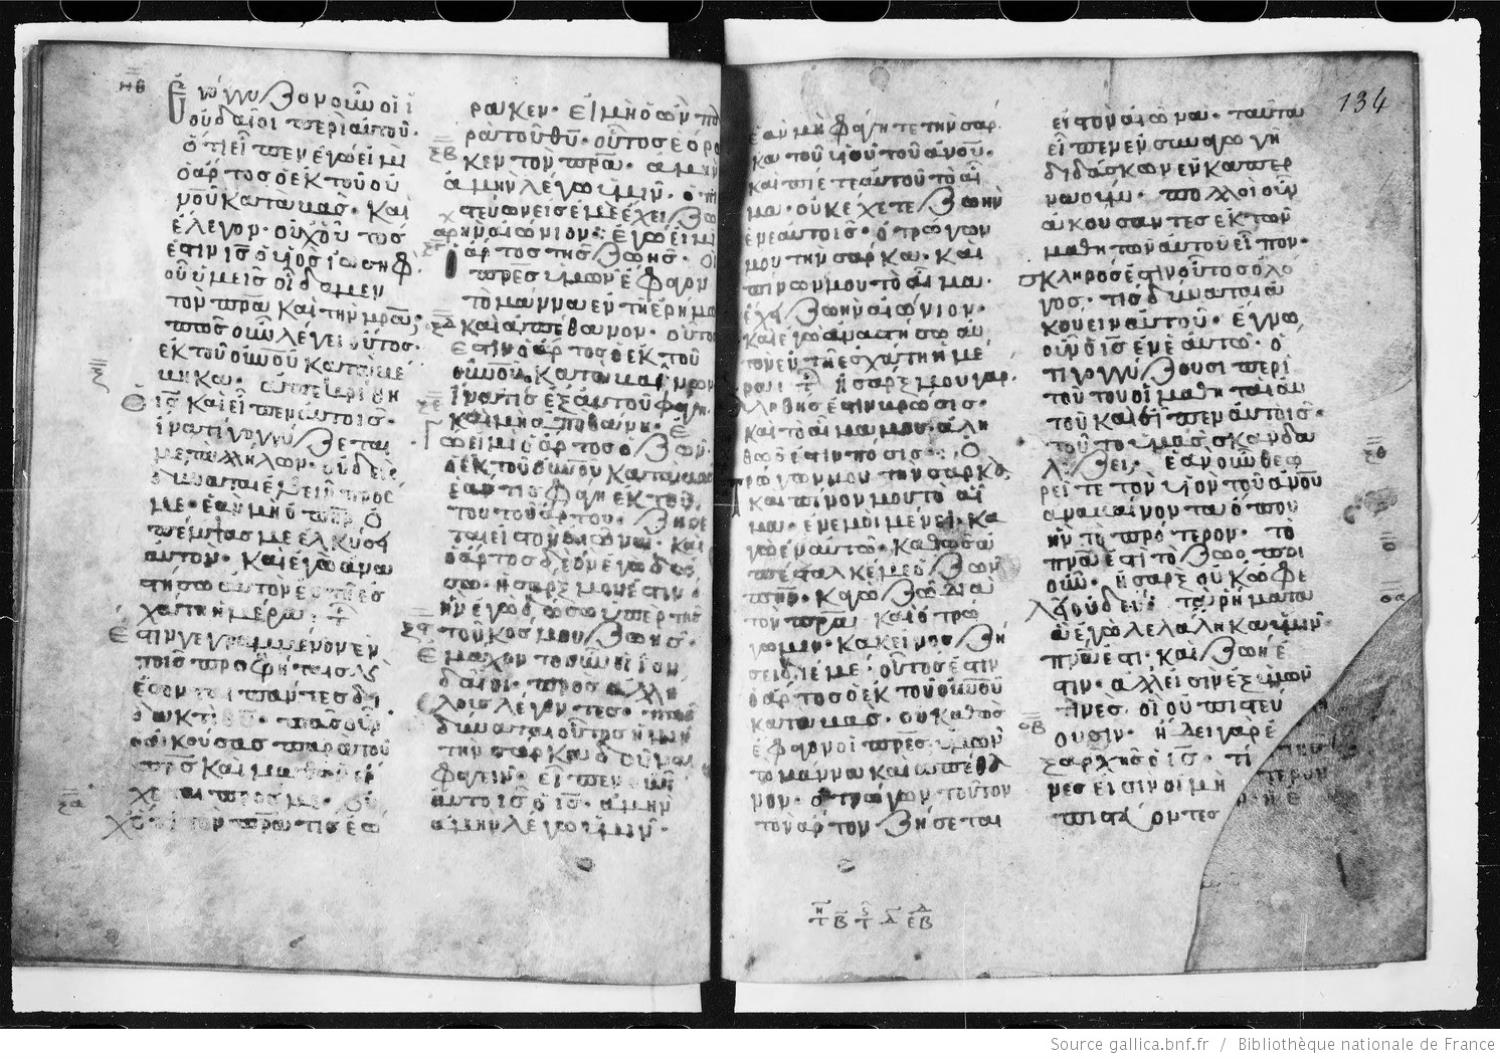 ΝΘ
Ἐγόγγυζον οὖν οἱ ἰ
ουδαῖοι περὶ αὐτοῦ·
ὅτι εἶπεν ἐγώ εἰμι
ὁ ἄρτος ὁ ἐκ τοῦ οὐ
νοῦ καταβάς· Καὶ
ἔλεγον· οὐχ οὗτος
ἐστιν ις ὁ υἱὸς ἰωσὴφ·
οὗ ὑμεῖς οἴδαμεν
τὸν πρα καὶ τὴν μρα·
πῶς οὖν λέγει οὗτος·
ἐκ τοῦ οὐνοῦ καταβέ
βηκα· ἀπεκρίθη
ὁ ις καὶ εἶπεν αὐτοῖς·
μετ ἀλλήλων· οὐδεὶς
δύναται ἐλθεῖν πρός
με· ἐὰν μὴ ὁ πηρ ὁ
πέμψας με ἑλκύσῃ
αὐτόν· Καὶ ἐγὼ ἀνα
στήσω αὐτὸν ἐν τῇ ἐσ
χάτῃ ἡμέρα·
ἔστιν γεγραμμένον ἐν
ἔσονται πάντες δι
δακτοὶ θυ· πᾶς ὁ
ἀκούσας παρὰ τοῦ
πρς καὶ μαθὼν ἔρ
χεται πρός με· οὐ
χ ὅτι τὸν πρα τις ἑώ
ρακεν· εἰ μὴ ὁ ὢν πα
ρὰ τοῦ θυ· οὗτος ἑόρα
κεν τὸν πρα· ἀμὴν
ἀμὴν λέγω ὑμῖν· ὁ πι
στεύων εἰς ἐμὲ ἔχει ζω
ὴν αἰώνιον· ἐγώ εἰμι
ὁ ἄρτος τῆς ζωῆς· οἱ
πρες ὑμῶν ἔφαγον
τὸ μάννα ἐν τῇ ἐρήμω
καὶ ἀπέθανον· οὗτος
ἐστιν ὁ ἄρτος ὁ ἐκ τοῦ
οὐνοῦ καταβαίνων
ἵνα τις ἐξ αὐτοῦ φάγη·
καὶ μὴ ἀποθάνη· ἐ
γώ εἰμι ὁ ἄρτος ὁ ζῶν·
ὁ ἐκ τοῦ οὐνοῦ καταβάς
ἐάν τις φάγη ἐκ τού
του τοῦ ἄρτου· ζήσε
ται εἰς τὸν αἰῶνα· καὶ
ὁ ἄρτος δὲ ὃν ἐγὼ δώ
σω· ἡ σάρξ μου ἐστὶν·
ἣν ἐγὼ δώσω ὑπὲρ τῆς
τοῦ κόσμου ζωῆς·
Ἐμάχοντο οὖν οἱ ἰου
δαῖοι· πρὸς ἀλλή
λους λέγοντες· πῶς
δύναται οὗτος ἡμῖν
τὴν σάρκα δοῦναι
φαγεῖν· εἶπεν οὖν
αὐτοῖς ὁ ις· ἀμὴν
ἀμὴν λέγω ὑμῖν·
134
ἐὰν μὴ φάγητε τὴν σάρ
κα τοῦ υἱοῦ τοῦ ἀνου·
καὶ πίετε αὐτοῦ τὸ αἷ
μα· οὐκ ἔχετε ζωὴν
ἐν ἑαυτοῖς· ὁ τρώγων
μου τὴν σάρκα· καὶ
πίνων μου τὸ αἷμα·
ἔχει ζωὴν αἰώνιον·
κἀγὼ ἀναστήσω αὐ
τὸν ἐν τῇ ἐσχάτη ἡμέ
ρα· ἡ σάρξ μου γὰρ
ἀληθής ἐστιν βρῶσις·
καὶ τὸ αἷμα μου ἀλη
θῶς ἐστιν πόσις· Ὁ
τρώγων μου τὴν σάρκα
καὶ πίνων μου τὸ αἷ
μα· ἐν ἐμοὶ μένει· κα
γὼ ἐν αὐτῶ· Καθὼς ἀ
πέσταλκέ με ὁ ζῶν
πηρ· κἀγὼ ζῶ διὰ
τὸν πρα· καὶ ὁ τρώ
γων με· κἀκεῖνος ζή
σει δι ἐμέ· οὗτός ἐστιν
ὁ ἄρτος ὁ ἐκ τοῦ οὐνοῦ
καταβάς· οὐ καθὼς
ἔφαγον οἱ πρες ὑμῶν
τὸ μάννα καὶ ἀπέθα
νον· ὁ τρώγων τοῦτον
τὸν ἄρτον ζήσεται
εἰς τὸν αἰῶνα· ταῦτα
εἶπεν ἐν συναγωγῇ
διδάσκων ἐν καπερ
ναούμ· πολλοὶ οὖν
ἀκούσαντες ἐκ τῶν
μαθητῶν αὐτοῦ εἶπον·
σκληρός ἐστιν οὗτος ὁ λό
γος· τίς δύναται ἀ
κούειν αὐτοῦ· ἔγνω
οὖν ὁ ις ἐν ἑαυτῶ· ὅ
τι γογγύζουσι περὶ
τούτου οἱ μαθηταὶ αὐ
τοῦ καὶ εἶπεν αὐτοῖς·
τοῦτο ὑμᾶς σκανδα
λίζει· ἐὰν οὖν θεω
ρεῖτε τὸν υἱὸν τοῦ ἀνου
ἀναβαίνοντα ὅπου
ἦν τὸ πρότερον· τὸ
πνα ἐστι τὸ ζωοποι
οῦν· ἡ σὰρξ οὐκ ὠφε
λεῖ οὐδέν· τὰ ῥήματα
ἃ ἐγὼ λελάληκα ὑμῖν·
πνα ἐστι· καὶ ζωή ἐ
στιν· ἀλλ εἰσὶν ἐξ ὑμῶν
τινες· οἳ οὐ πιστεύ
ουσιν· ᾔδει γὰρ ἐ
ξ ἀρχῆς ὁ ις· τί
νες εἰσὶν οἱ μὴ
πιστεύοντες
Source gallica.bnf.fr / Bibliothèque nationale de France